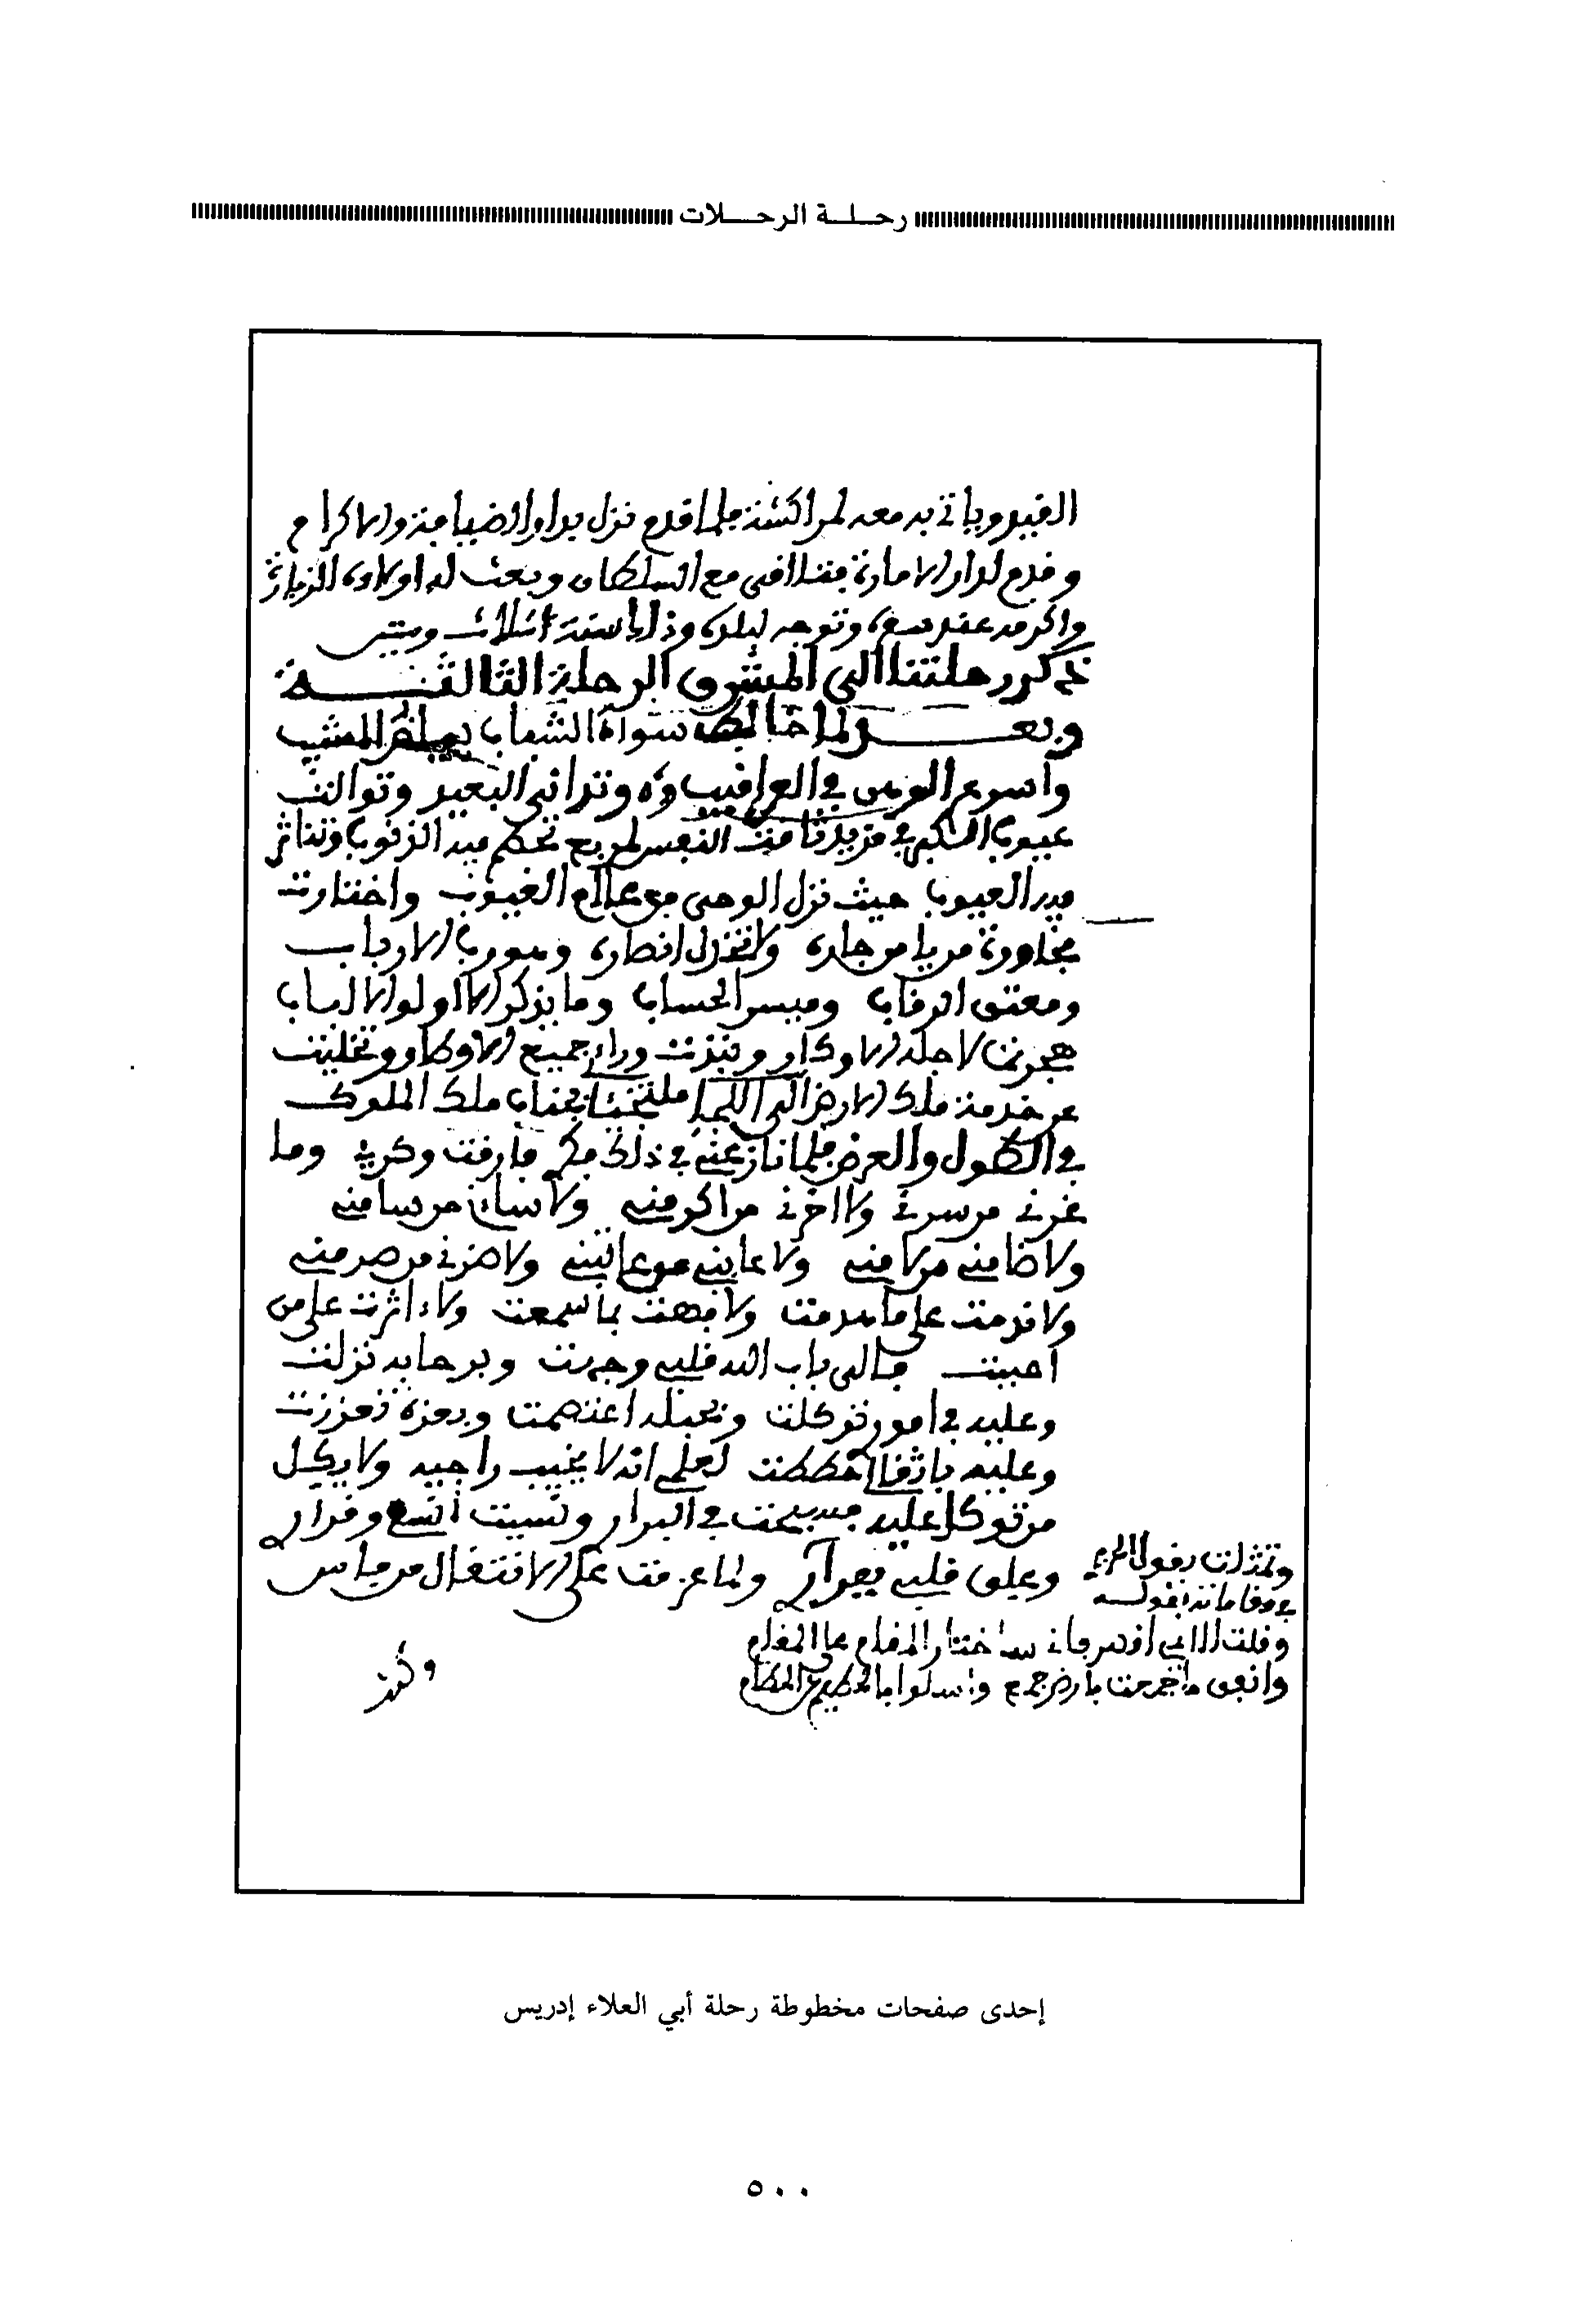 رحلة الرحلات
وياتي به معه لمراكشة فلما قدم نزل بدار الضيافة والاكرام
وقدم لدار الامارة فتلاقى مع السلطان وبعث له اولاده للزيارة
واكرمه وتوجه لبلده وذلك سنة ثلاث وستين
ذكر رحلتنا الى المشرق الرحلة الثالثة
وبعد لما خالط سواد الشباب المشيب
واسرع في العراقيب وتدانى البعيد وتوالت
فيه الذنوب وتناثر
فيه العيوب حيث نزل الوحي من علام الغيوب واختارت
مجاورة من جاره انصاره ورب الارباب
ومعتق الرقاب وميسر الحساب وما يذكر الا اولوا الالباب
هجرت لاجله الاوكار ونبذت وراءي جميع الاوطار وتخليت
عن خدمة ملك الارض الى ملتجئا بجناب ملك الملوك
في الطول والعرض فلما نازعني في ذلك فكر فارقت وكري وما
غرني من سرني ولا اخرني من اكرمني ولا ساني من سامني
ولا ضامني من لامني ولا عابني من عاتبني ولا ضرني من صرمني
ولا ندمت على ما هدمت ولا فهت بما سمعت ولا ءاثرت على من
احببت فالى باب الله قلبي وجهت وبرحابه نزلت
وعليه في امور توكلت وبحبله اعتصمت وبعزه تعززت
وعليه باثقالي حططت لعلمي انه لا يخيب راجيه ولا يكل
من توكل عليه فسبحت في البرار ونسيت وقرار
وعلق قلبي ولما عزمت على الانتقال من فاس
وتمثلت بقول الحريري
في مقاماته بقوله
وقلت للائمي اقصر فاني ساختار المقام على المقام
وانفق ما جمعت بارض جمع واسلوا بالحطيم عن الحطام
إحدى صفحات مخطوطة رحلة أبي العلاء إدريس
٥٠٠